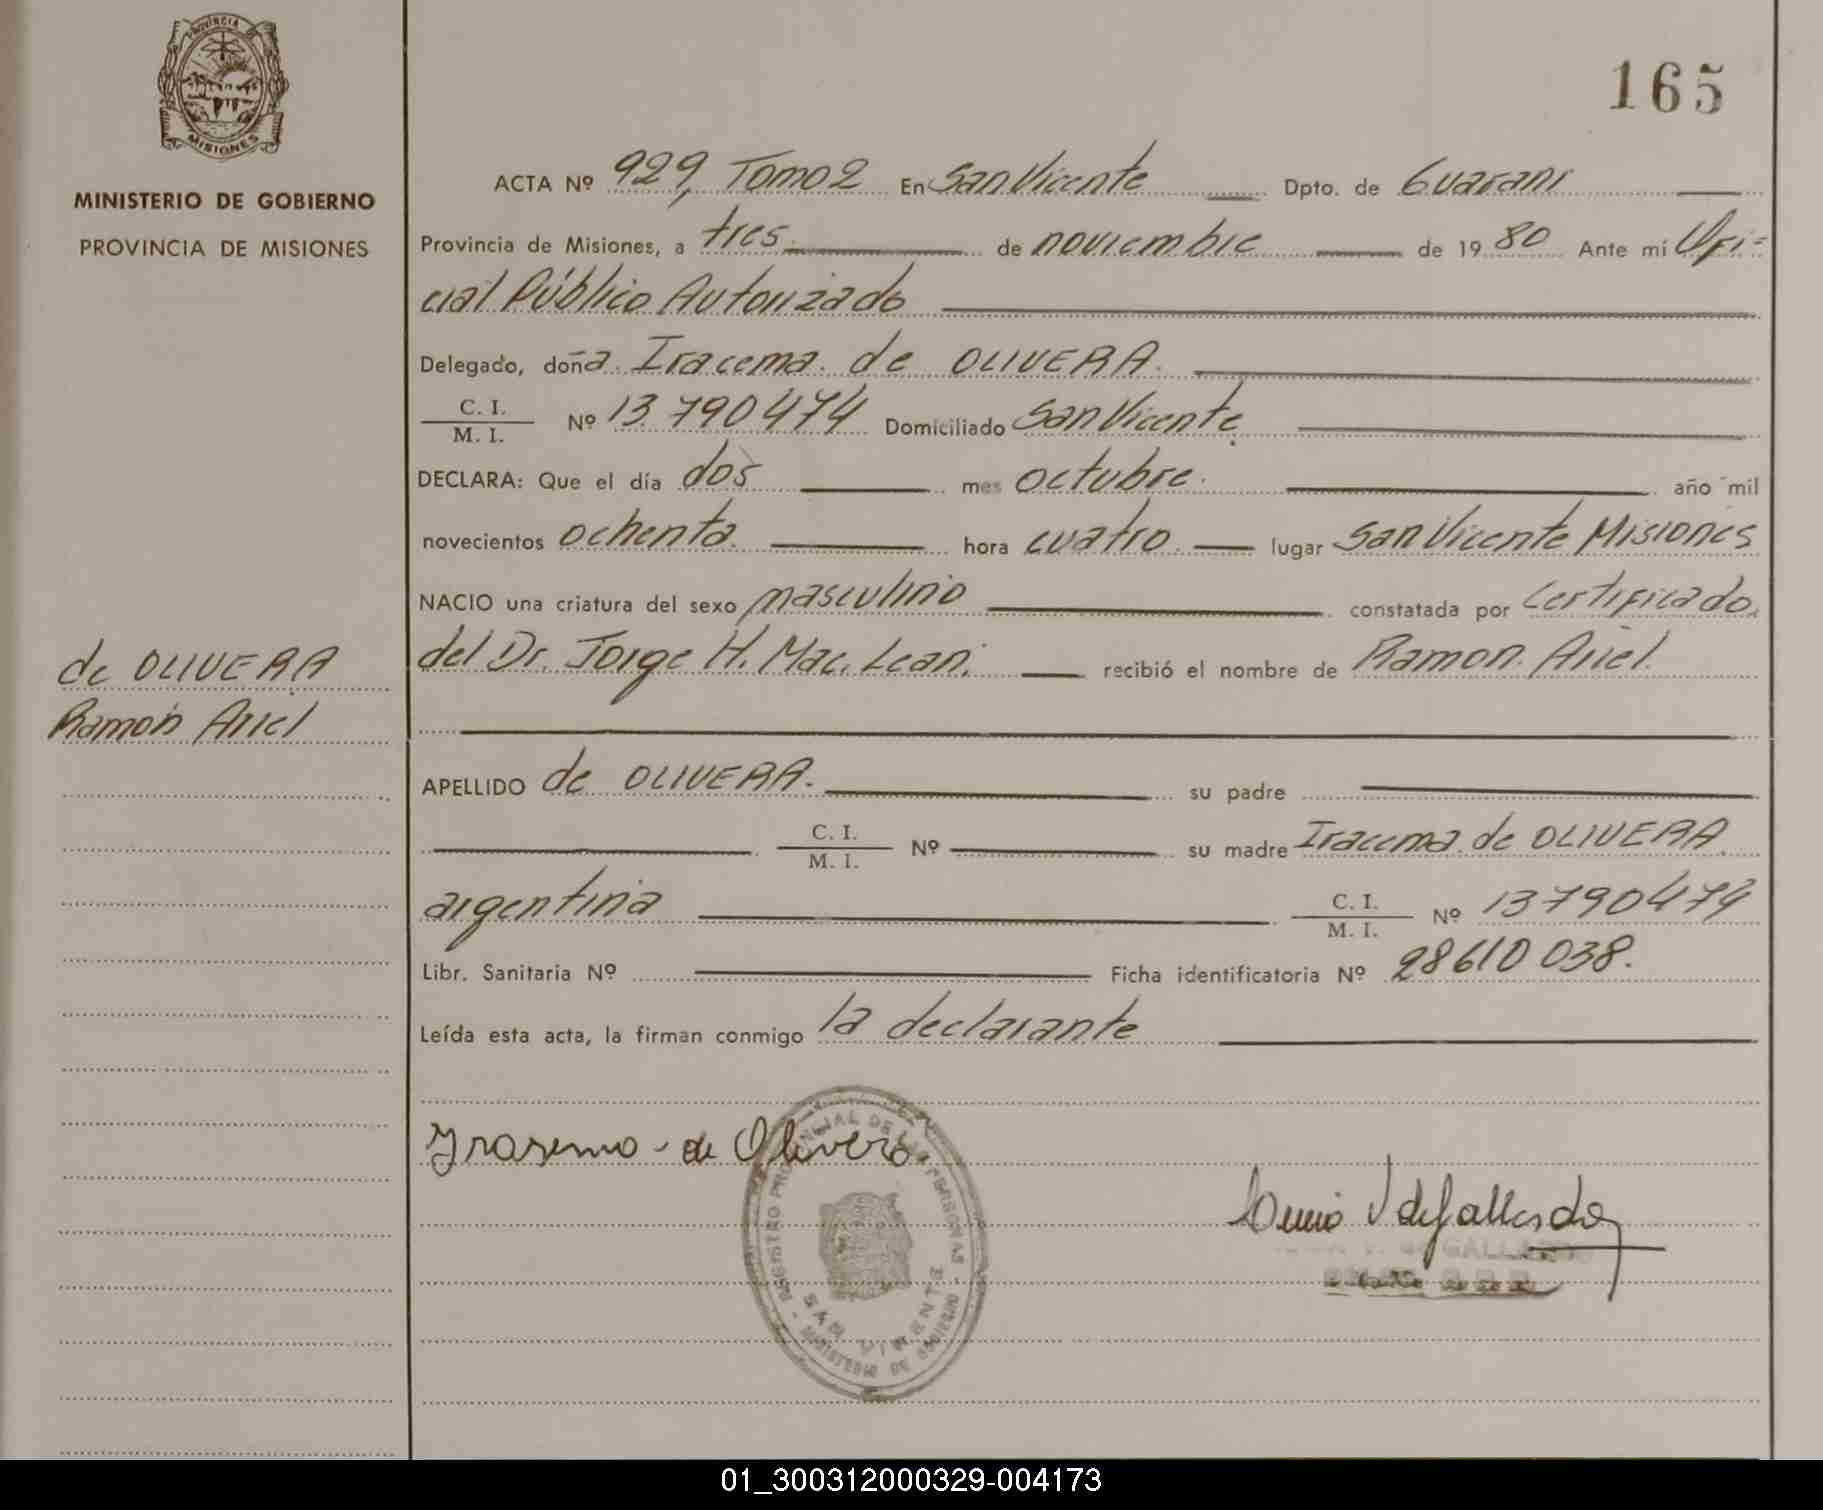 PROVINCIA
MISIONES
MINISTERIO DE GOBIERNO
PROVINCIA DE MISIONES
de OLIVERA
Ramón Ariel
165
ACTA Nº 929, Tomo 2 En San Vicente Dpto. de Guaraní
Provincia de Misiones, a tres de noviembre de 19 80 Ante mí Ofi=
cial Público Autorizado
Delegado, doña Iracema de OLIVERA.
C. I.
M. I.
Nº 13.790474 Domiciliado San Vicente.
DECLARA: Que el día dos mes octubre. año mil
novecientos ochenta hora cuatro lugar San Vicente Misiones
NACIO una criatura del sexo masculino constatada por Certificado
del Dr. Jorge H. Mac. Lean. recibió el nombre de Ramon Ariel.
APELLIDO de OLIVERA. su padre
C. I.
M. I.
Nº su madre Iracema de OLIVERA
argentina C. I.
M. I.
Nº 13790474
Libr. Sanitaria Nº Ficha identificatoria Nº 28610038.
Leída esta acta, la firman conmigo la declarante
Irasema - de Olivera
REGISTRO PROVINCIAL DE LAS PERSONAS
SAN VICENTE
MINISTERIO DE GOBIERNO
V. de GALLARDO
01_300312000329-004173